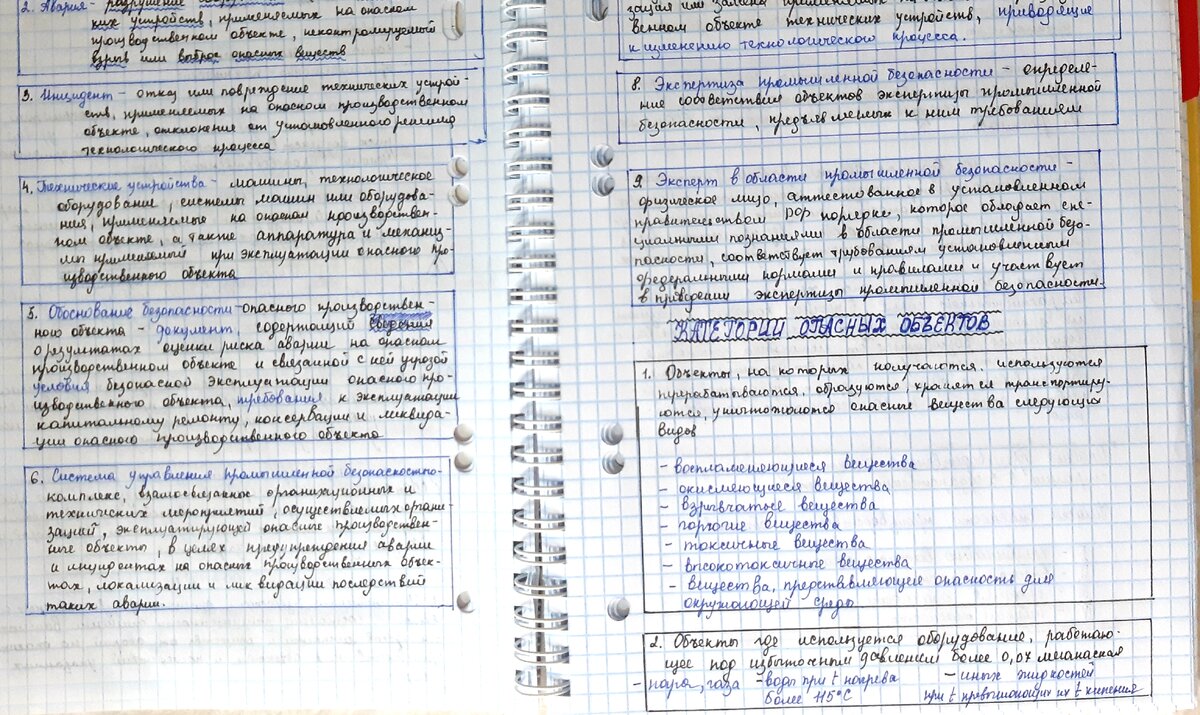 2. Авария - разрушение
ких устройств, применяемых на опасном
производственном объекте, неконтролируемый
взрыв или выброс опасных веществ
3. Инцидент - отказ или повреждение технических устрой-
ств, применяемых на опасном производственном
объекте, отклонение от установленного режима
технологического процесса
4. Технические устройства - машины, технологическое
оборудование, системы машин или оборудова-
ния, применяемые на опасном производствен-
ном объекте, а также аппаратура и механиз-
мы применяемый при эксплуатации опасного про-
изводственного объекта
5. Обоснование безопасности - опасного производствен-
ного объекта - документ, содержащий сведения
о результатах оценки риска аварии на опасном
производственном объекте и связанной с ней угрозой
условия безопасной эксплуатации опасного про-
изводственного объекта, требования к эксплуатации
капитальному ремонту, консервации и ликвида-
ции опасного производственного объекта
6. Система управления промышленной безопасностью-
комплекс, взаимосвязанное организационных и
технических мероприятий, осуществляемых органи-
зацией, эксплуатирующей опасные производствен-
ные объекты, в целях предупреждения аварии
и инцидентах на опасных производственных объек-
тах, локализации и ликвидации последствий
таких аварии.
зация или замена применяемых на
венном объекте технических устройств, приводящие
к изменению технологического процесса.
8. Экспертиза промышленной безопасности - определе-
ние соответствия объектов экспертизы промышленной
безопасности, предъявляемых к ним требованиям
9. Эксперт в области промышленной безопасности -
физическое лицо, аттестованное в установленном
правительством РФ порядке, которое обладает спе-
циальными познаниями в области промышленной безо-
пасности, соответствует требованиям установленным
федеральными нормами и правилами и участвует
в проведении экспертизы промышленной безопасности.
КАТЕГОРИИ ОПАСНЫХ ОБЪЕКТОВ
1. Объекты, на которых получаются, используются
перерабатываются, образуются, хранятся транспортиру-
ются, уничтожаются опасные вещества следующих
видов
- воспламеняющиеся вещества
- окисляющиеся вещества
- взрывчатые вещества
- горючие вещества
- токсичные вещества
- высокотоксичные вещества
- вещества, представляющие опасность для
окружающей среды
2. Объекты где используется оборудование, работаю-
щее под избыточным давлением более 0,07 мегапаскаля
- пара, газа - воды при t нагрева - иных жидкостей
более 115°C при t превышающих их t кипения